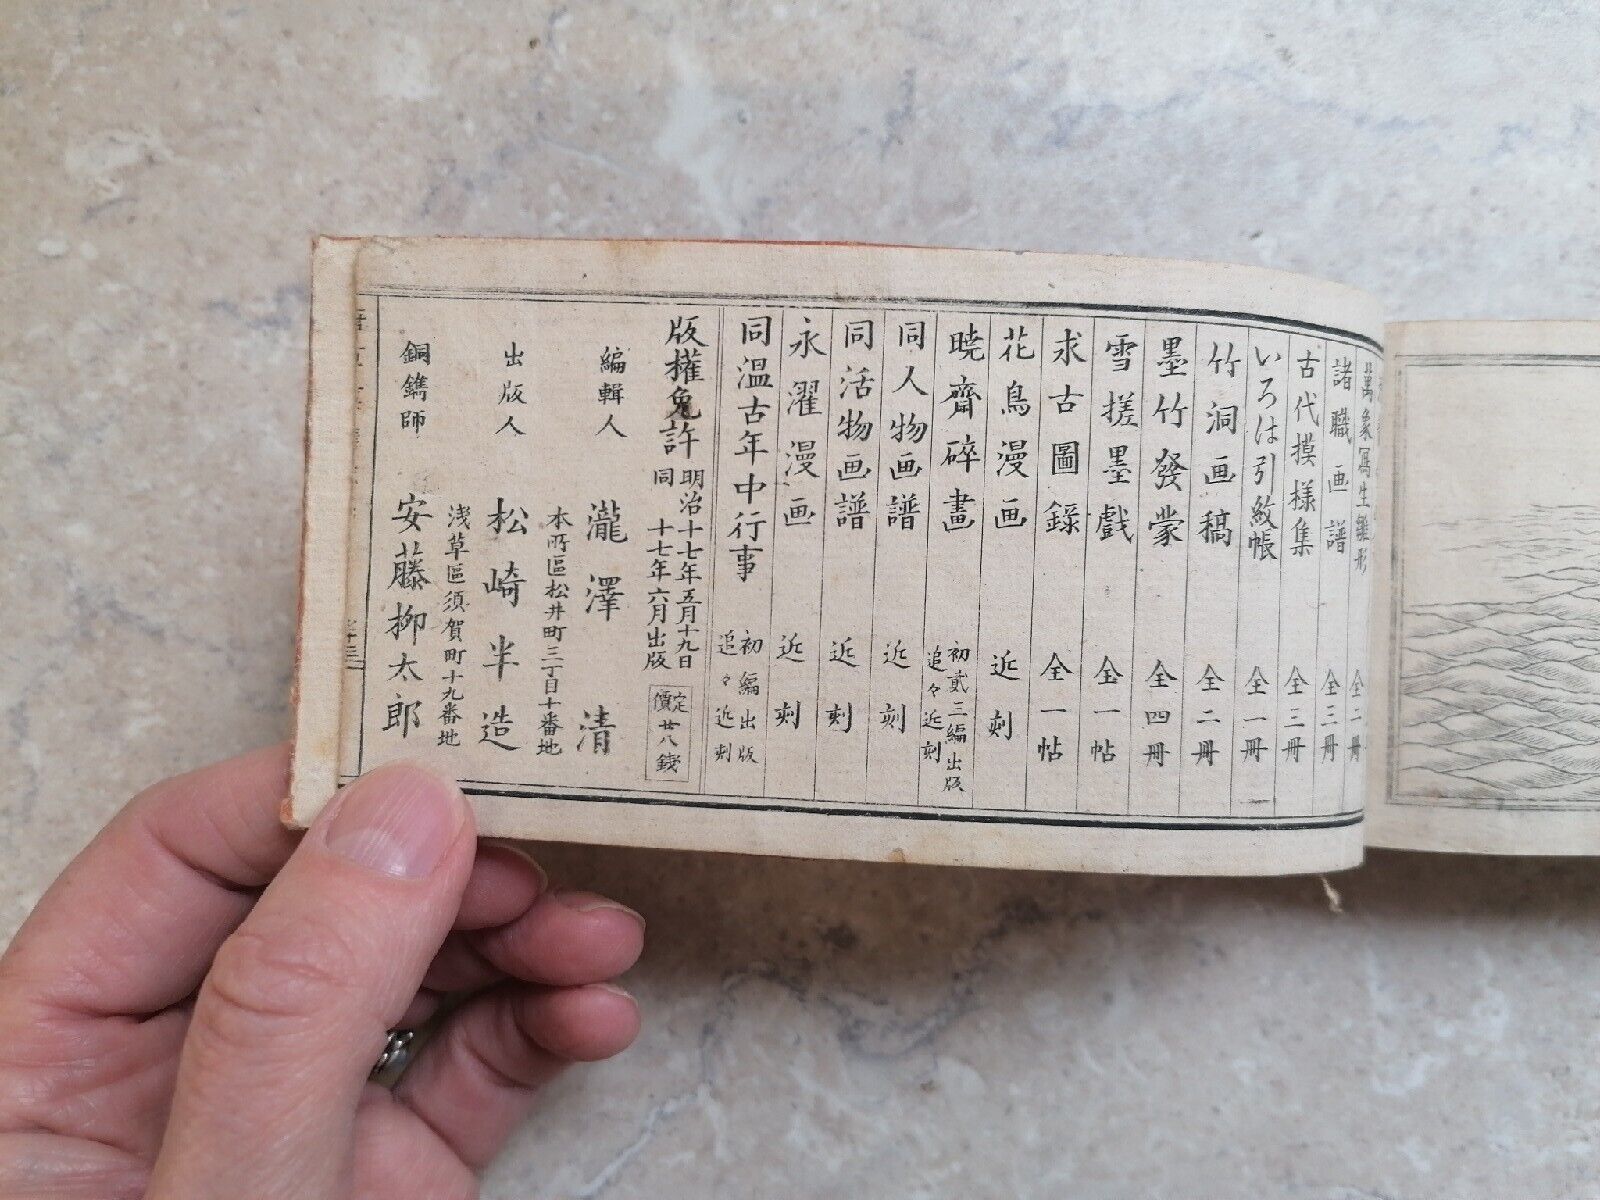 萬象寫生雛形 全二冊
諸職画譜 全三冊
古代摸様集 全三冊
いろは引紋帳 全一冊
竹洞画稿 全二冊
墨竹發蒙 全四冊
雪搓墨戲 全一帖
求古圖錄 全一帖
花鳥漫画 近刻
暁齋碎畫 初貳三編出版 追々近刻
同人物画譜 近刻
同活物画譜 近刻
永濯漫画 近刻
同温古年中行事 初編出版 追々近刻
版權免許 明治十七年五月十九日
同 十七年六月出版
定價廿八錢
編輯人 瀧澤清
本所區松井町三丁目十番地
出版人 松崎半造
浅草區須賀町十九番地
銅鐫師 安藤柳太郎